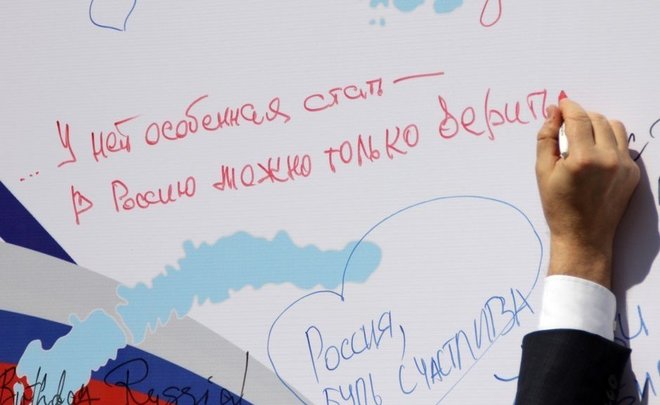 ... У ней особенная стать —
В Россию можно только верить
Россия,
будь счастлива
Birthday Russia!